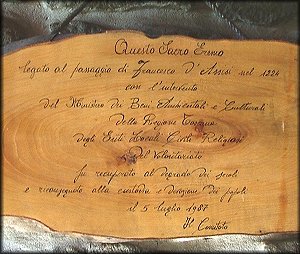 Questo Sacro Eremo
legato al passaggio di Francesco D'Assisi nel 1224
con l'intervento
del Ministero dei Beni Ambientali e Culturali
della Regione Toscana
degli Enti Locali Civili Religiosi
e del Volontariato
fu recuperato al degrado dei secoli
e riconsegnato alla custodia e devozione dei popoli
il 5 luglio 1987
Il Comitato